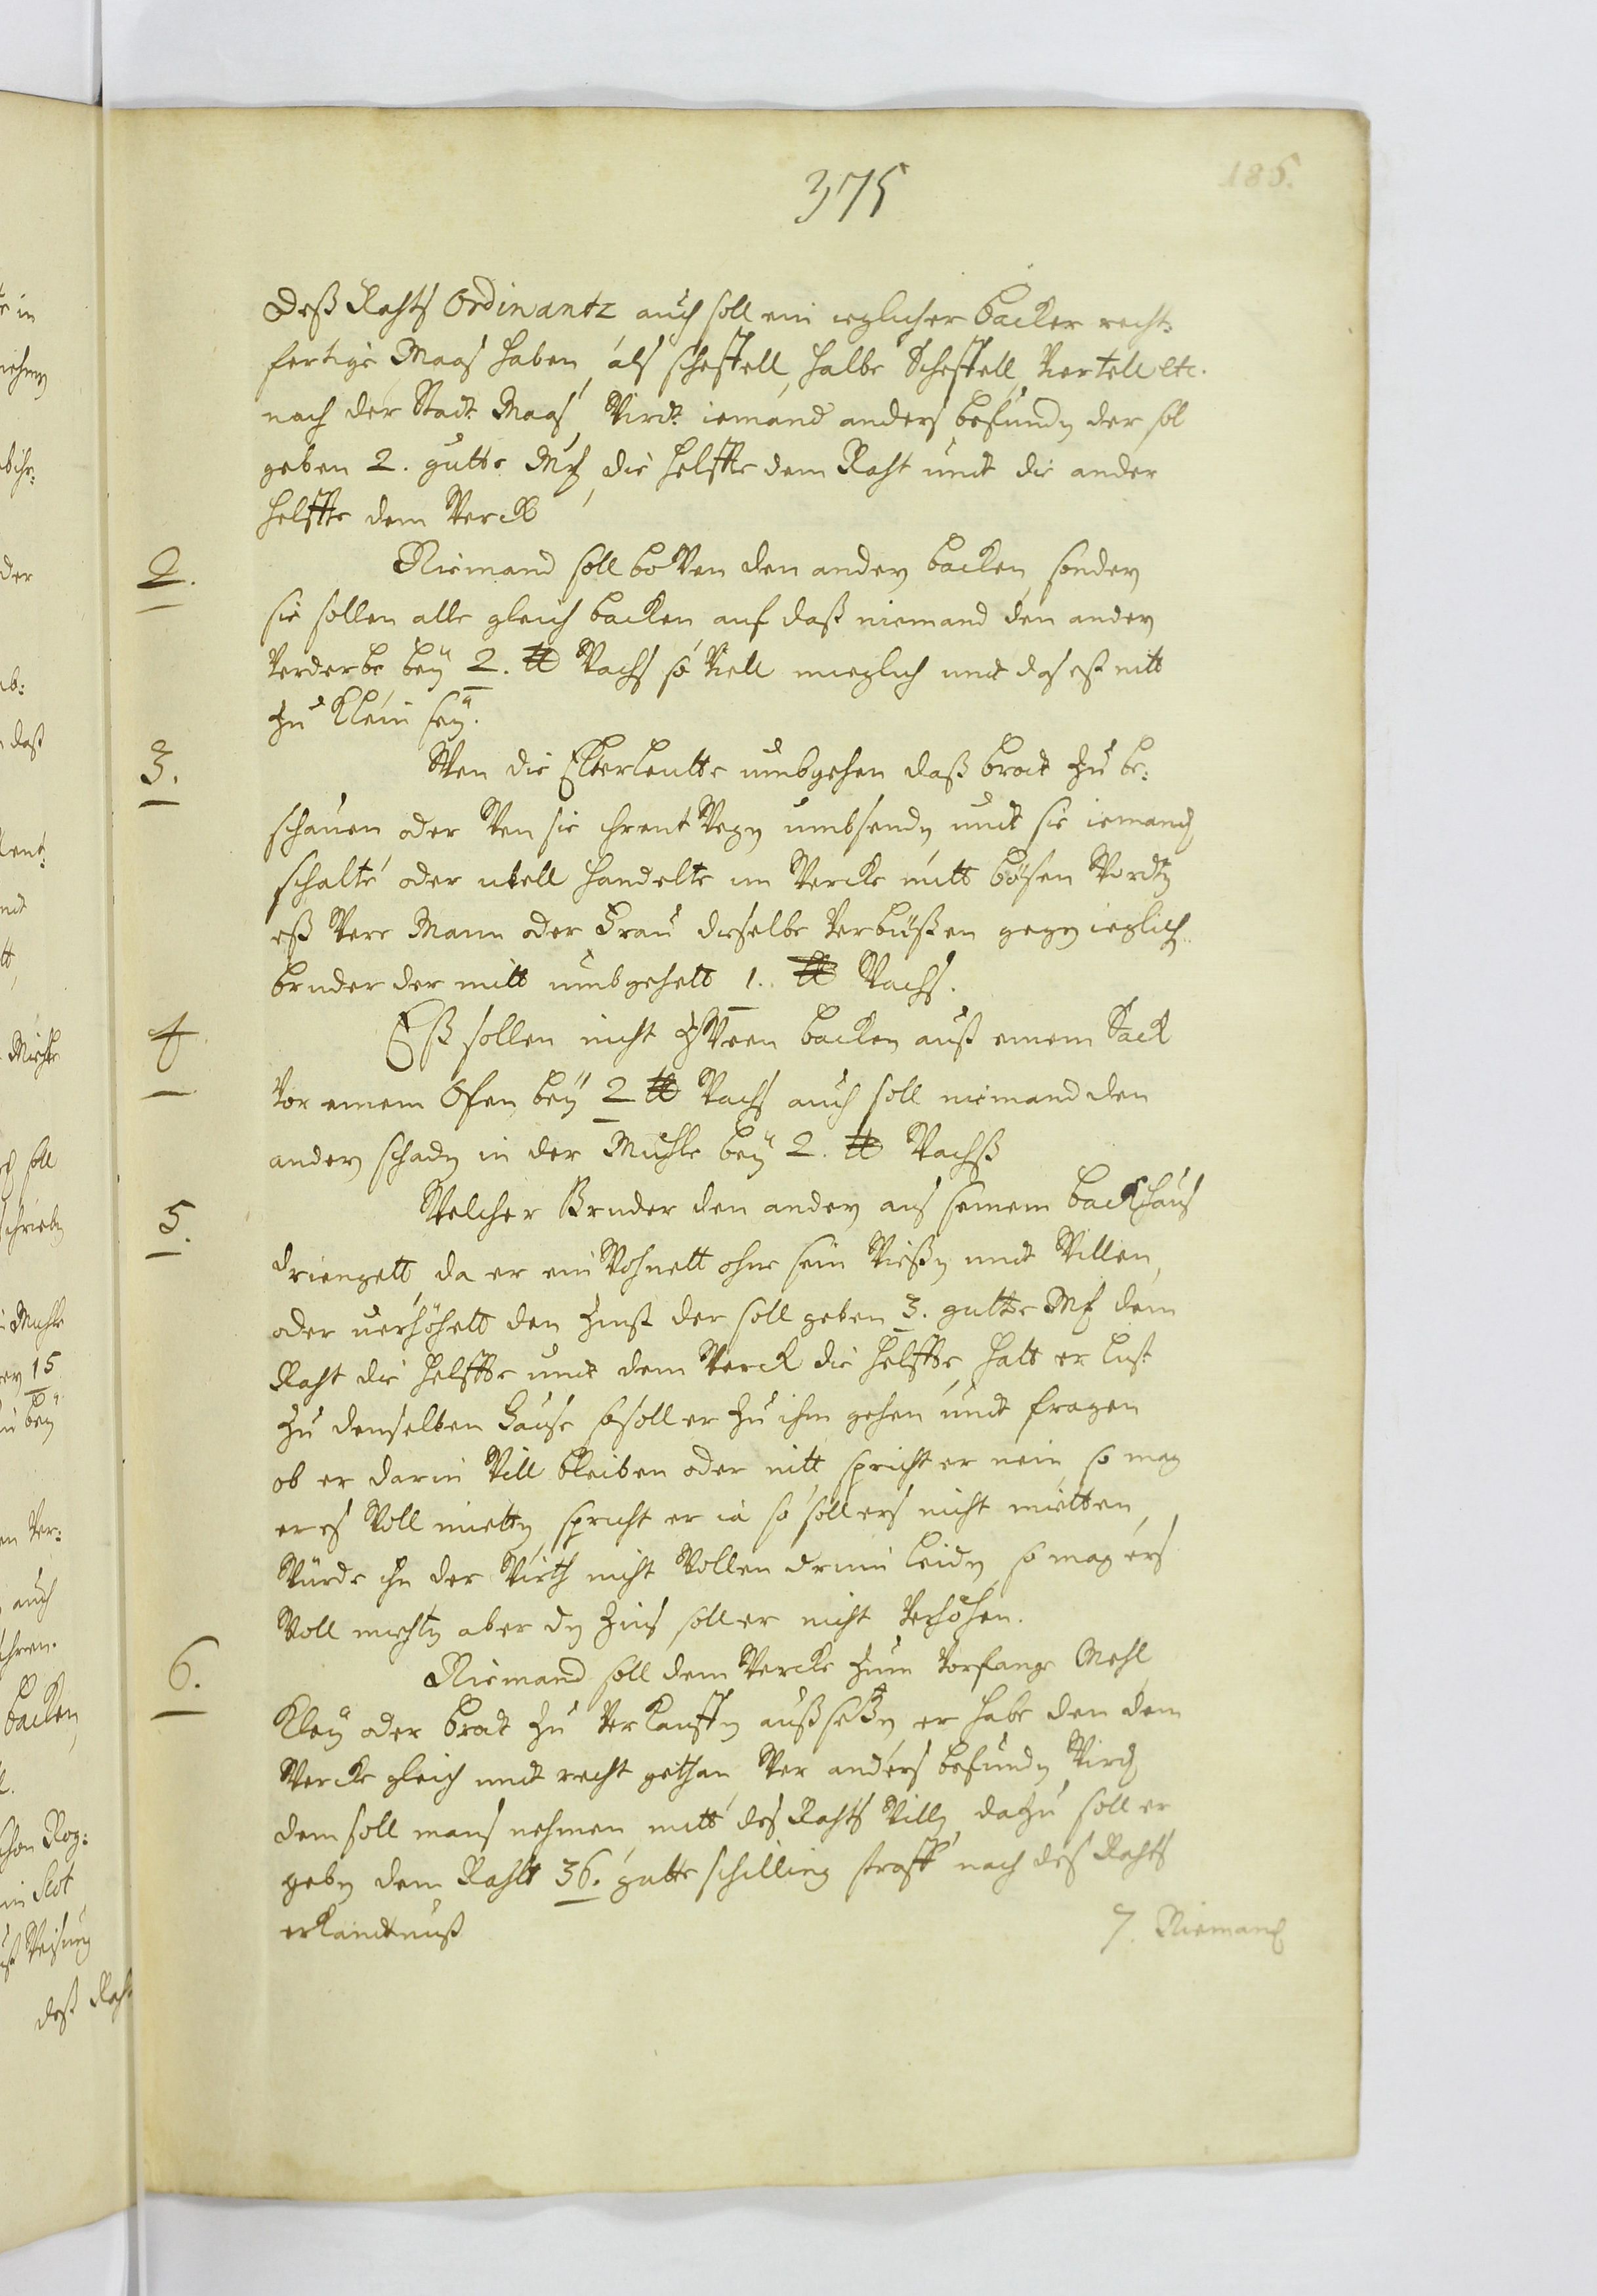 375
185.
deß Rahts Ordinantz auch soll ein ieglicher backer recht:
fertige Maas haben, als scheffell, halbe Scheffell, Viertell etc.
nach der Stadt Maas, Wirdt iemand anders befundn der sol
geben 2. gutte Mk, die helffte dem Raht undt die ander
helffte dem Werck
2. Niemand soll boven den andern backen, sondern
sie sollen alle gleich backen auf daß niemand den andern
Verderbe beÿ 2. ℔ Wachs so Viell mieglich undt das eß nitt
zu klein seÿ.
3. Wen die Elterleutte umbgehen daß brodt zu be:
schauen oder Wen sie ihrent Wegn umbsendn undt sie iemand
schalte oder ubell handelte im Wercke mitt bösen Wordtn
eß Were Mann oder Frau dieselbe Verbüßen gegn ieglich
bruder der mitt umbgehett 1. ℔ Wachs.
4 Eß sollen nicht zween backen auß einem Sack
Vor einem Ofen beÿ 2 ℔ Wachs auch soll niemand den
andern schadn in der Muhle beÿ 2. ℔ Wachß
5. Welcher Bruder den andern aus seinem backhaus
driengett, da er ein Wohnett ohne sein Wießn undt Willen,
oder uerhöhett den Zinß der soll geben 3. gutte Mk dem
Raht die helffte undt dem Werck die helffte, hatt er lust
zu denselben Hause so soll er zu ihm gehen undt fragen
ob er darin Will bleiben oder nitt spricht er nein so mag
er es Woll miettn, spricht er ia so soll ers nicht mietten,
Würde ihn der Wirth nicht Wollen drinn leidn, so mag ers
Woll miehtn aber dn Zins soll er nicht Verhöhen.
6. Niemand soll dem Wercke zum Vorfange Mehl
Kleÿ oder brodt zu Verkauffn außseßn, er habe den dem
Wercke gleich undt recht gethan Wer anders befundn Wird
dem soll mans nehmen mitt des Rahts Willn, dazu soll er
gebn dem Rahtt 36. gutte schilling straff nach des Rahts
erkandtnuß
7. Niemand